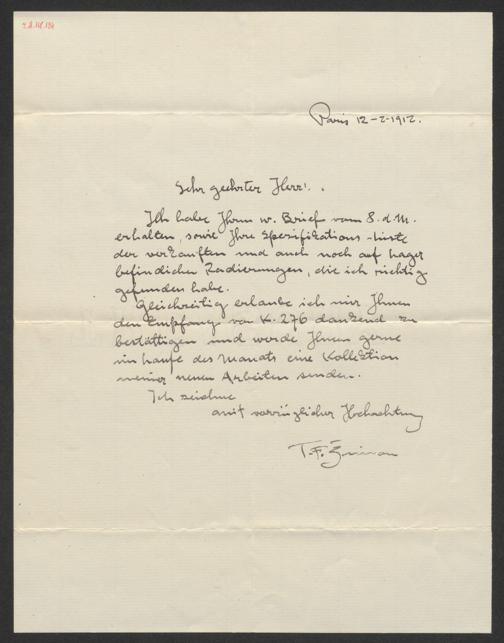 Paris 12-2-1912.
Sehr geehrter Herr!
Ich habe Ihren w. Brief vom 8. d. M.
erhalten, sowie Ihre Spezifikations-Liste
der verkauften und auch noch auf Lager
befindlichen Radierungen, die ich richtig
gefunden habe.
Gleichzeitig erlaube ich mir Ihnen
den Empfang von K. 276 dankend zu
bestättigen und werde Ihnen gerne
im Laufe des Monats eine Kollektion
meiner neuen Arbeiten senden.
Ich zeichne
mit vorzüglicher Hochachtung
T.F. Šimon